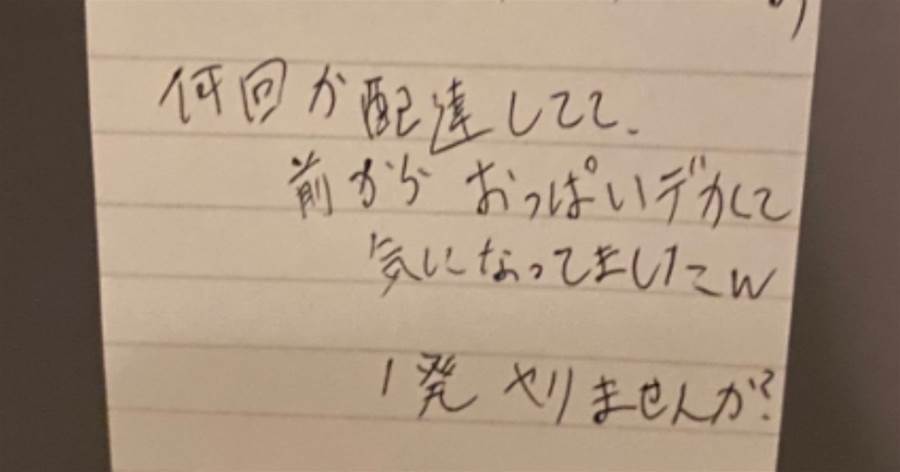 何回か配達してて、
前からおっぱいデカくて
気になってましたw
1発ヤりませんか?